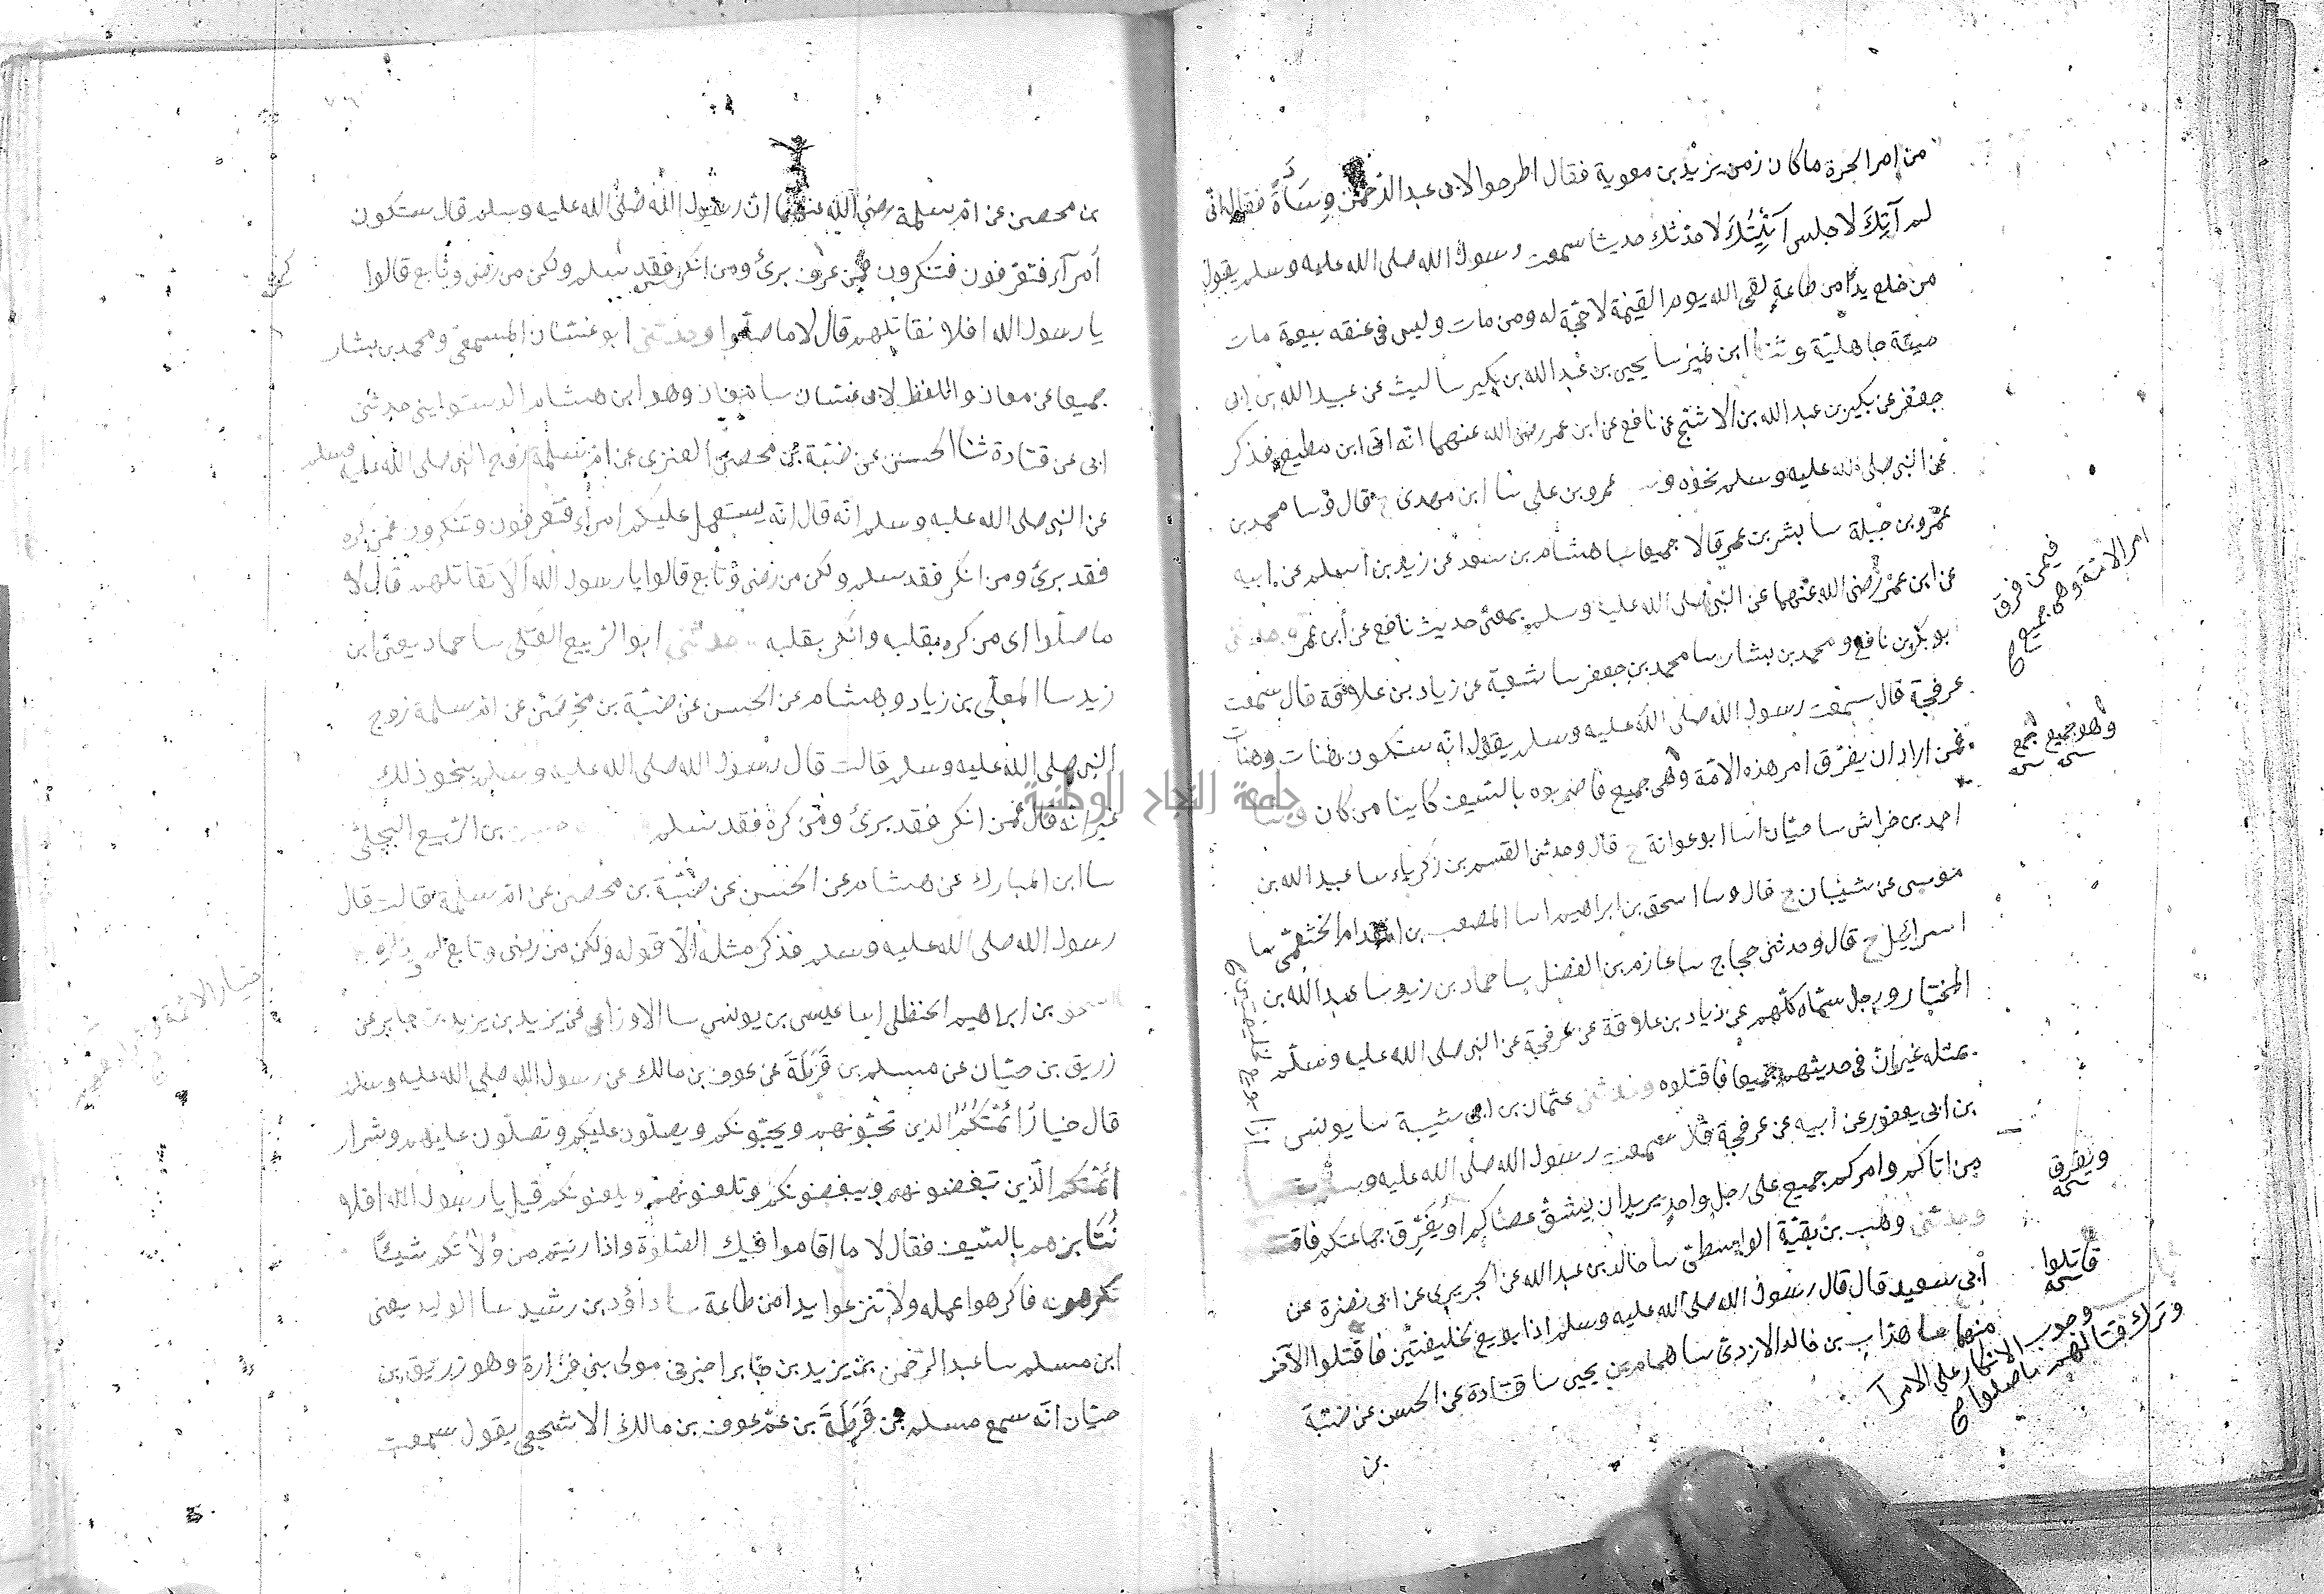 من امر الحرة ما كان زمن يزيد بن معوية فقال اطرحوا لابى عبد الرحمن وسادة فقال انى
لم آتك لاجلس آتيتك لاحدثك حديثا سمعت رسول الله صلى الله عليه وسلم يقول
من خلع يدا من طاعة لقى الله يوم القيمة لا حجة له ومن مات وليس فى عنقه بيعة مات
ميتة جاهلية وثنا ابن نمير سا يحيى بن عبد الله بن بكير سا ليث عن عبيد الله بن ابى
جعفر عن بكير بن عبد الله بن الاشج عن نافع عن ابن عمر رضى الله عنهما انه اتى ابن مطيع فذكر
عن النبى صلى الله عليه وسلم نحوه عمرو بن على سا ابن مهدى ح قال وسا محمد بن
عمرو بن جبلة سا بشر بن عمر قالا جميعا سا هشام بن سعد عن زيد بن اسلم عن ابيه
عن ابن عمر رضى الله عنهما عن النبى صلى الله عليه وسلم بمعنى حديث نافع عن ابن عمر حدثنى
ابو بكر بن نافع ومحمد بن بشار سا محمد بن جعفر سا شعبة عن زياد بن علاقة قال سمعت
عرفجة قال سمعت رسول الله صلى الله عليه وسلم يقول انه ستكون هنات وهنات
فمن اراد ان يفرق امر هذه الامة وهى جميع فاضربوه بالسيف كاينا من كان وسا
احمد بن خراش سا حبان اسا ابو عوانة ح قال وحدثنى القسم بن زكرياء سا عبيد الله بن
موسى عن شيبان ح قال وسا اسحق بن ابراهيم اسا المصعب بن المقدام الخثعمى سا
اسرائيل ح قال وحدثنى حجاج سا عازم بن الفضل سا حماد بن زيد سا عبد الله بن
المختار ورجل سماه كلهم عن زياد بن علاقة عن عرفجة عن النبى صلى الله عليه وسلم
بمثله غير ان فى حديثهم جميعا فاقتلوه وحدثنى عثمان بن ابى شيبة سا يونس
بن ابى يعفور عن ابيه عن عرفجة قال سمعت رسول الله صلى الله عليه وسلم
من اتاكم وامركم جميع على رجل واحد يريد ان يشق عصاكم او يفرق جماعتكم
وحدثنى وهب بن بقية الواسطى سا خالد بن عبد الله عن الجريرى عن ابى نضرة عن
ابى سعيد قال قال رسول الله صلى الله عليه وسلم اذا بويع لخليفتين فاقتلوا الآخر
منهما سا هداب بن خالد الازدى سا همام بن يحيى سا قتادة عن الحسن عن ضبة
بن
فيمن فرق
امر الامة وهى جميع
وهو جميع جمع
ويفرق
قاتلوا
وجوب الانكار على الامرآ
وترك قتالهم ما صلوا
اذا بويع لخليفتين
بن محصن عن ام سلمة رضى الله عنها ان رسول الله صلى الله عليه وسلم قال ستكون
أمرآء فتعرفون فتنكرون فمن عرف برئ ومن انكر فقد سلم ولكن من رضى وتابع قالوا
يا رسول الله افلا نقاتلهم قال لا ما صلوا وحدثنى ابو غسان المسمعى ومحمد بن بشار
جميعا عن معاذ واللفظ لابى غسان سا معاذ وهو ابن هشام الدستوايى حدثنى
ابى عن قتادة ثنا الحسن عن ضبة بن محصن العنزى عن ام سلمة زوج النبى صلى الله عليه وسلم
عن النبى صلى الله عليه وسلم انه قال انه يستعمل عليكم امرآء فتعرفون وتنكرون فمن كره
فقد برئ ومن انكر فقد سلم ولكن من رضى وتابع قالوا يا رسول الله الا نقاتلهم قال لا
ما صلوا اى من كره بقلبه وانكر بقلبه حدثنى ابو الربيع العتكى سا حماد يعنى ابن
زيد سا المعلى بن زياد وهشام عن الحسن عن ضبة بن محصن عن ام سلمة زوج
النبى صلى الله عليه وسلم قالت قال رسول الله صلى الله عليه وسلم بنحو ذلك
غير انه قال فمن انكر فقد برئ ومن كره فقد سلم بن الربيع البجلى
سا ابن المبارك عن هشام عن الحسن عن ضبة بن محصن عن ام سلمة قالت قال
رسول الله صلى الله عليه وسلم فذكر مثله الا قوله ولكن من رضى وتابع
اسحق بن ابراهيم الحنظلى اسا عيسى بن يونس سا الاوزاعى عن يزيد بن يزيد بن جابر عن
زريق بن حيان عن مسلم بن قرظة عن عوف بن مالك عن رسول الله صلى الله عليه وسلم
قال خيار ائمتكم الذين تحبونهم ويحبونكم ويصلون عليكم وتصلون عليهم وشرار
ائمتكم الذين تبغضونهم ويبغضونكم وتلعنونهم ويلعنونكم قيل يا رسول الله افلا
ننابزهم بالسيف فقال لا ما اقاموا فيك الصلوة واذا رئيتم من ولاتكم شيئا
تكرهونه فاكرهوا عمله ولا تنزعوا يدا من طاعة سا داؤد بن رشيد سا الوليد يعنى
ابن مسلم سا عبد الرحمن بن يزيد بن جابر اخبرنى مولى بنى فزارة وهو زريق بن
حيان انه سمع مسلم بن قرظة بن عم عوف بن مالك الاشجعى يقول سمعت
خيار الائمة
جامعة النجاح الوطنية